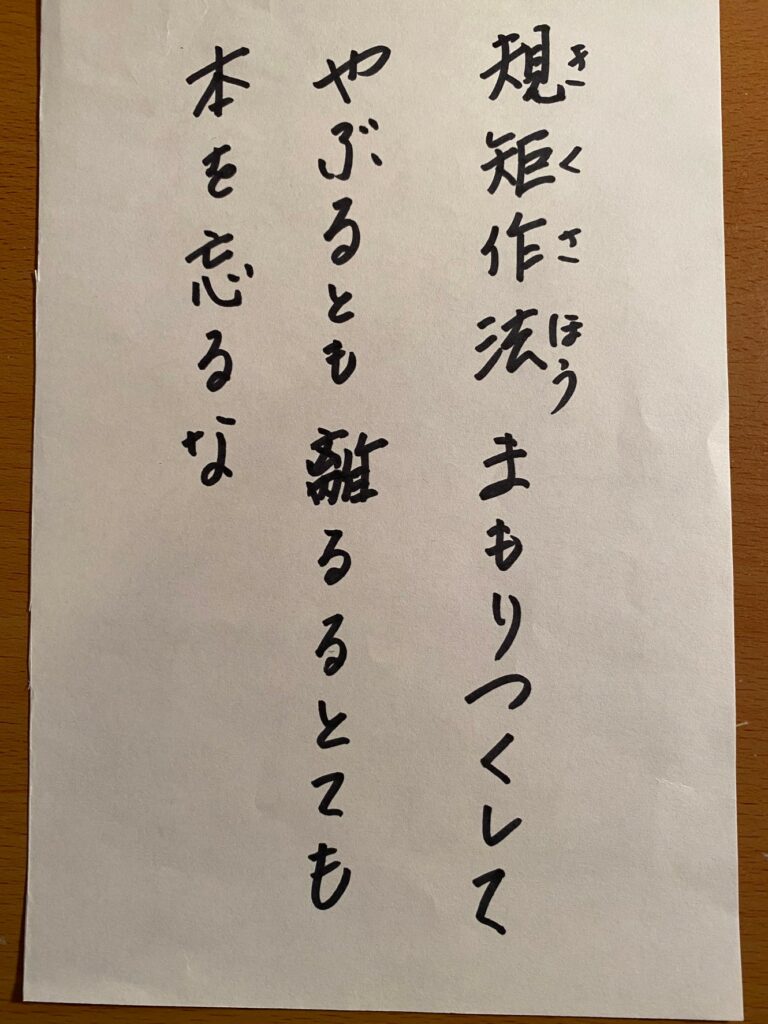 規矩作法 まもりつくして
きくさほう
やぶるとも 離るるとても
本を忘るな